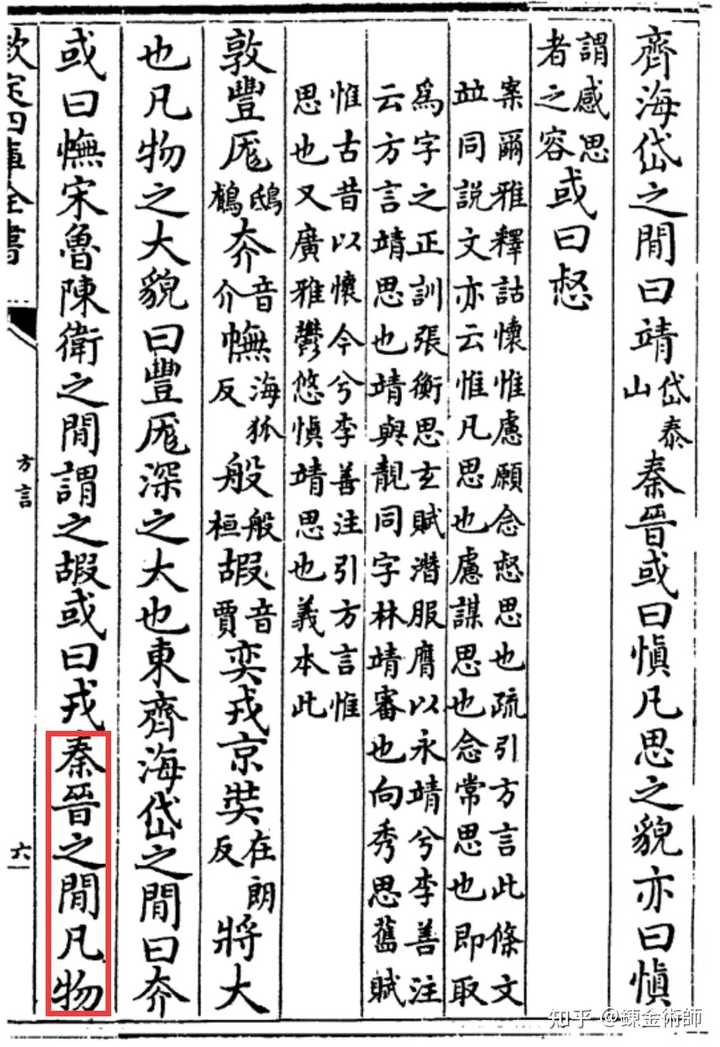 齊海岱之閒曰靖岱泰山秦晉或曰慎凡思之貌亦曰慎
謂感思者之容或曰惄
案爾雅釋詁懷惟慮願念惄思也疏引方言此條文
竝同說文亦云惟凡思也慮謀思也念常思也即取
爲字之正訓張衡思玄賦潛服膺以永靖兮李善注
云方言靖思也靖與靚同字林靖審也向秀思舊賦
惟古昔以懷今兮李善注引方言惟
思也又廣雅鬱悠慎靖思也義本此
敦豐厖鴟鵂夰音介幠海狐反般般桓嘏音賈奕戎京奘在朗反將大
也凡物之大貌曰豐厖深之大也東齊海岱之閒曰夰
或曰幠宋魯陳衛之閒謂之嘏或曰戎秦晉之閒凡物
欽定四庫全書
方言
六
知乎 @鍊金術師